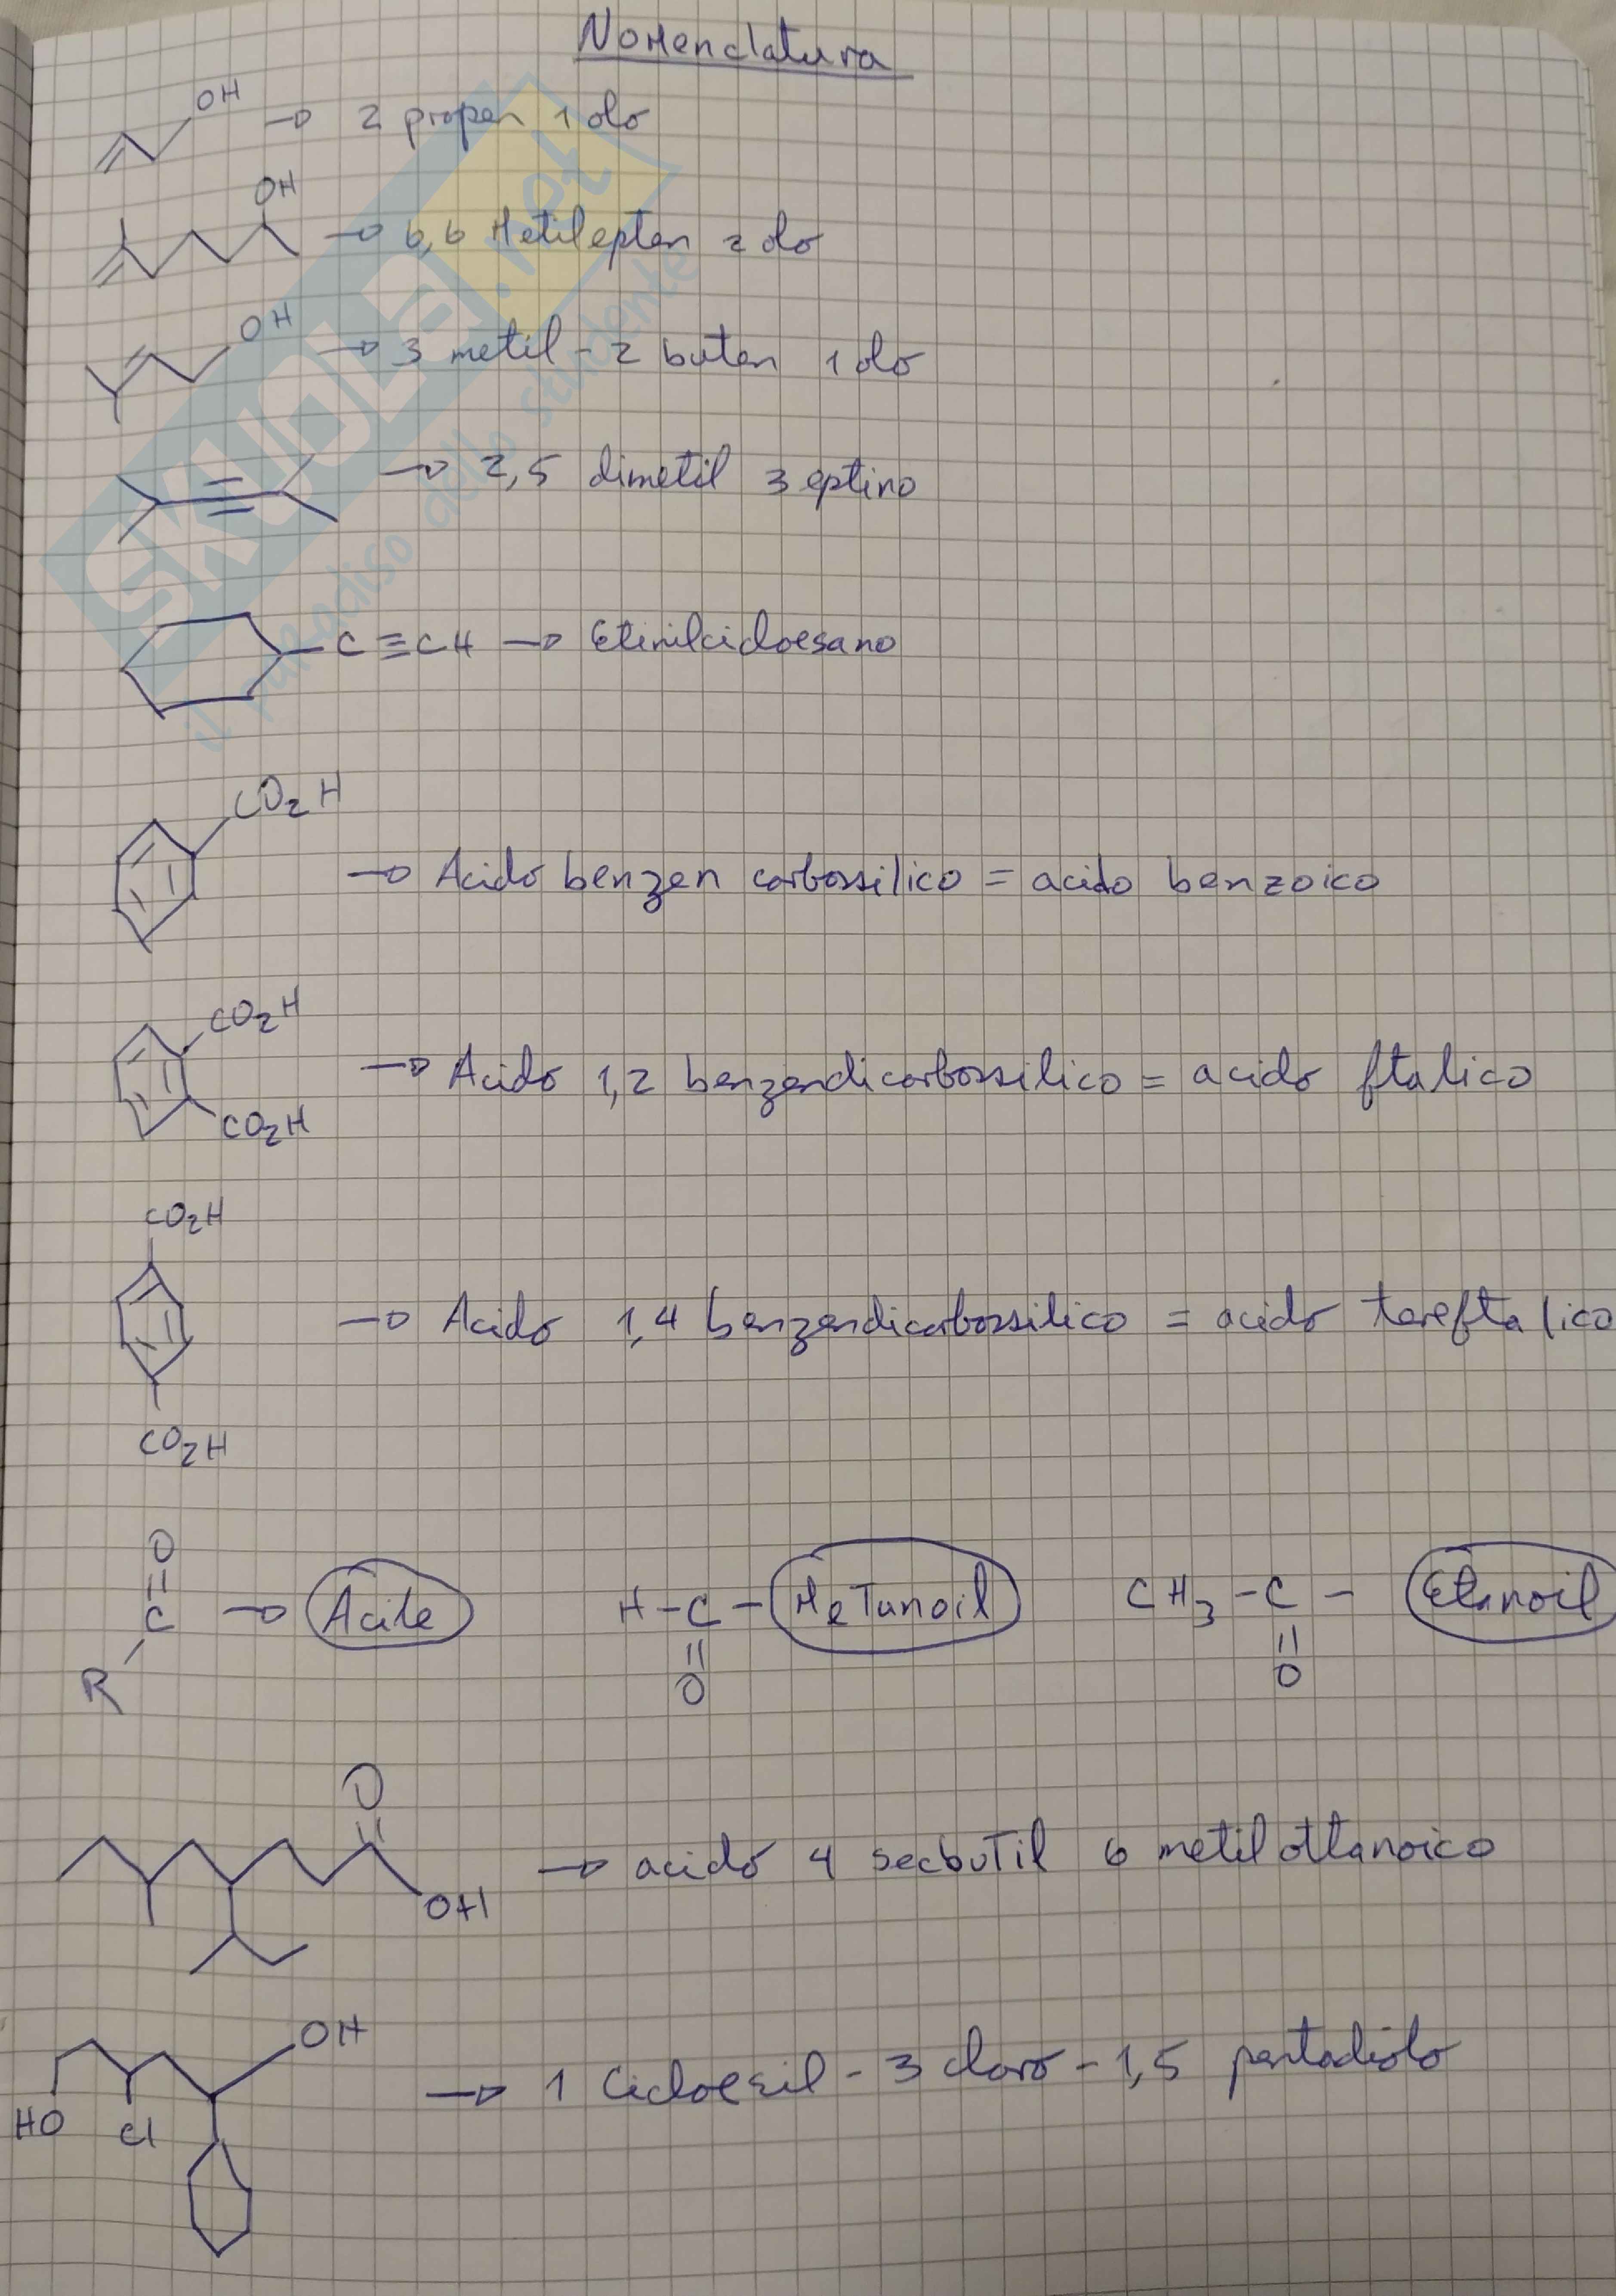 Nomenclatura
OH
→ 2 propen 1 olo
OH
→ 6,6 Metilepten 2 olo
OH
→ 3 metil - 2 buten 1 olo
→ 2,5 dimetil 3 eptino
C≡CH → Etinilcicloesano
CO₂H
→ Acido benzen carbossilico = acido benzoico
CO₂H
→ Acido 1,2 benzendicarbossilico = acido ftalico
CO₂H
CO₂H
→ Acido 1,4 benzendicarbossilico = acido tereftalico
CO₂H
O
C → Acile H-C- Metanoil CH₃-C- Etanoil
R O O
O
→ acido 4 secbutil 6 metil ottanoico
OH
OH
→ 1 Cicloesil - 3 cloro - 1,5 pentadiolo
HO Cl
SKUOLA.net
il paradiso dello studente